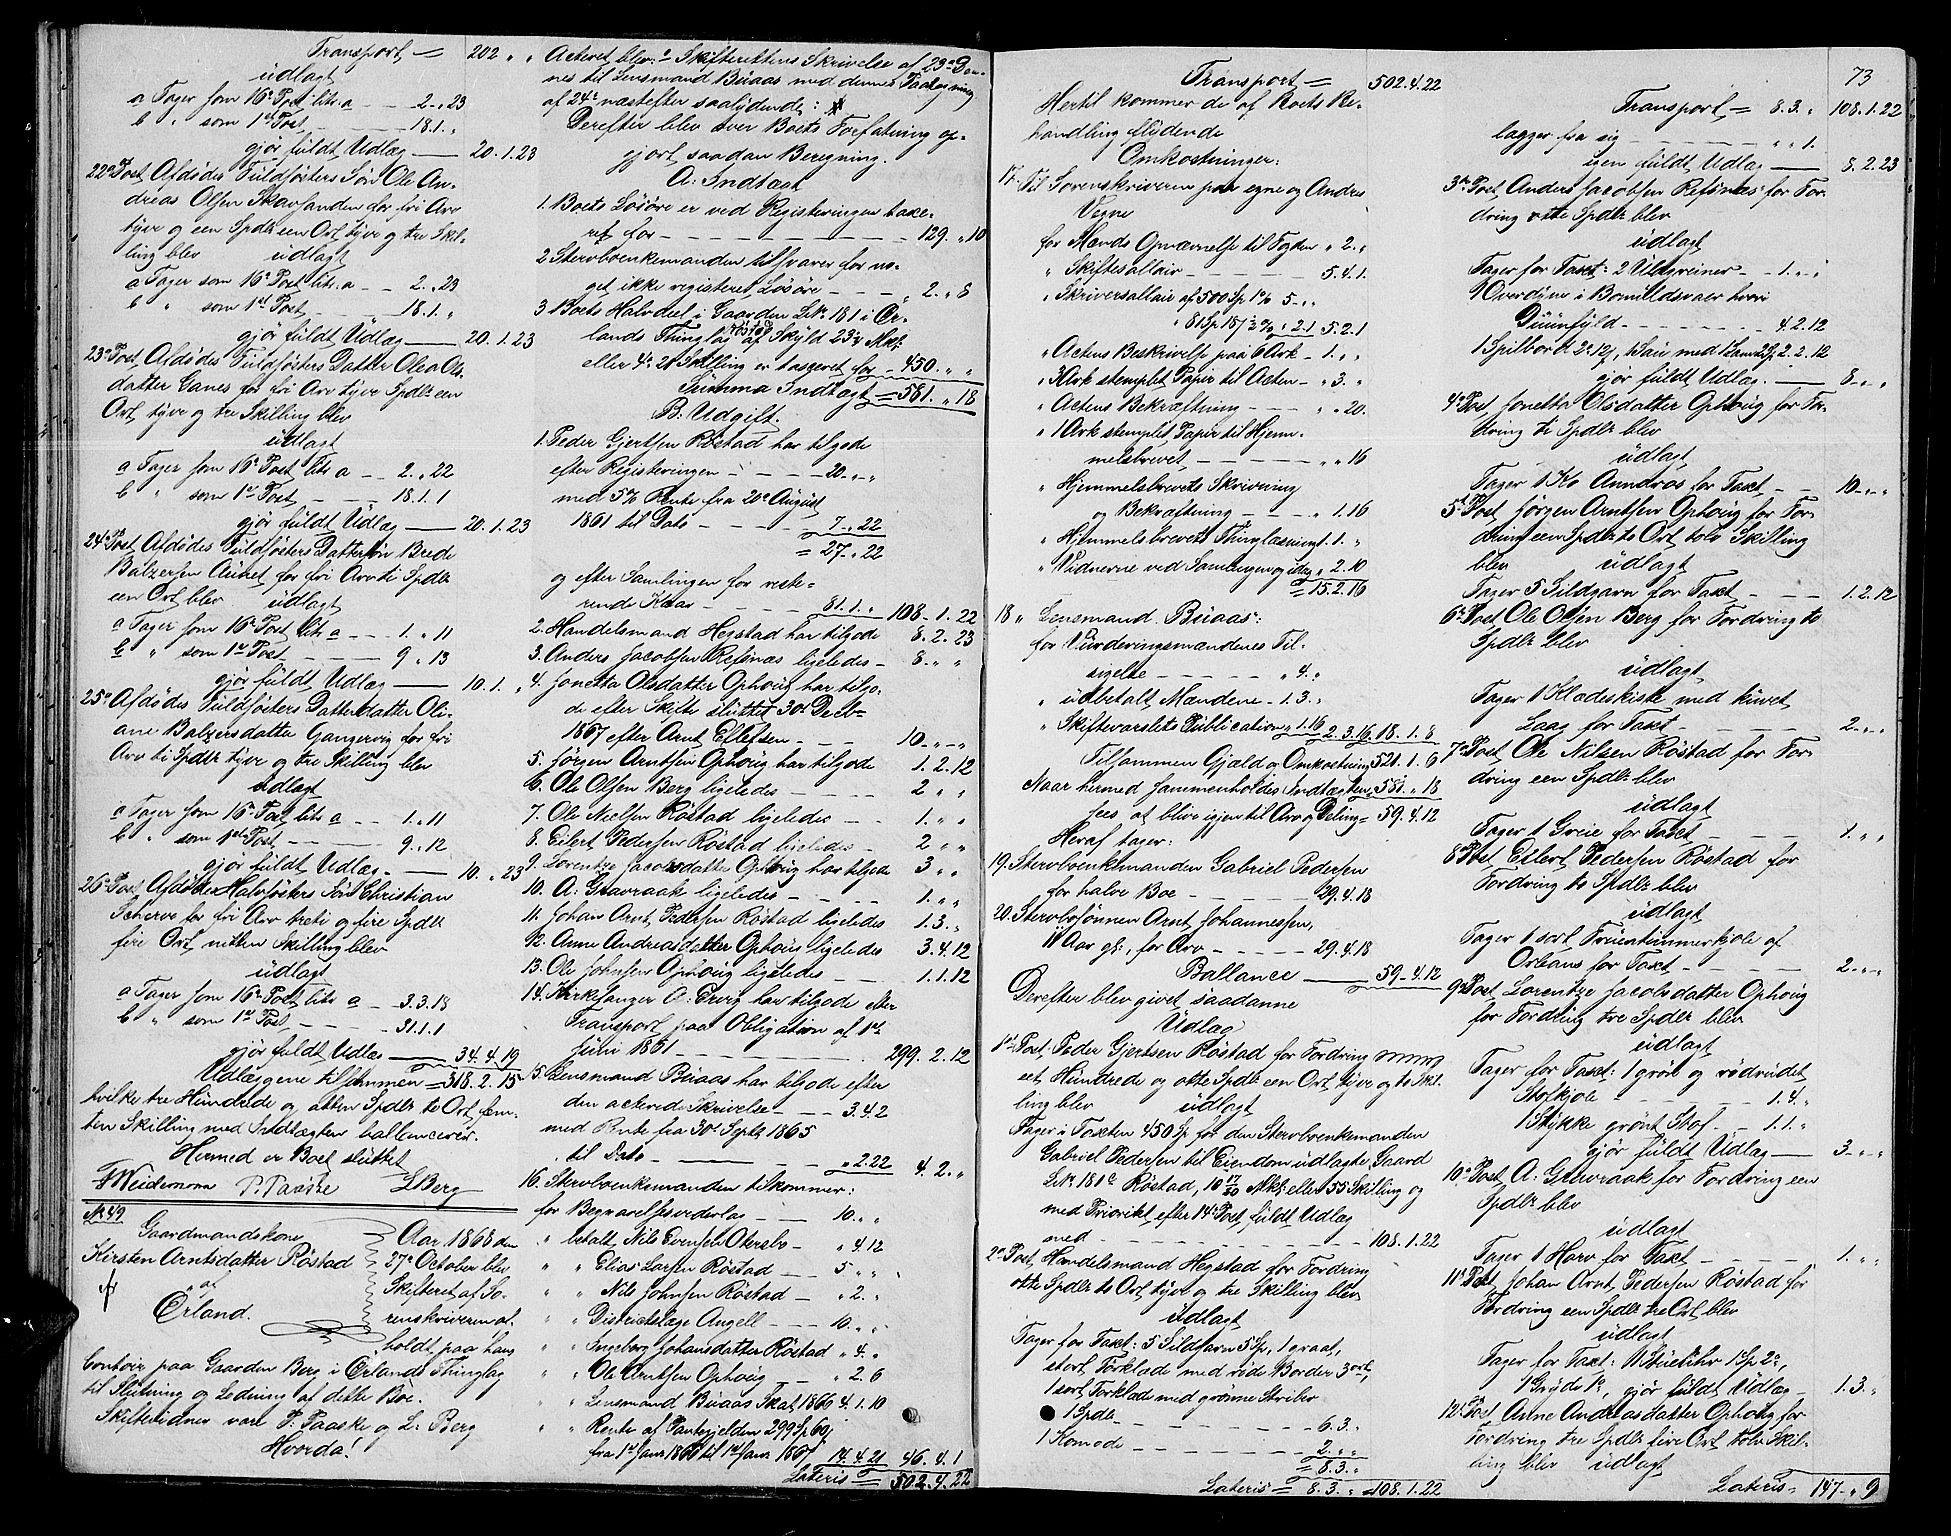 Transport = 202 " "
udlagt
a Tager som 16de Post litr. a - - 2. " 23
b " som 1ste Post, - - - 18. 1. "
gjør fuldt Udlæg — 20. 1. 23
22de Post, Afdødes Fuldsøsters Søn Ole An-
dreas Olsen Skavlanden for fri Arv
tyve og een Spdlr een Ort tyve og tre Skil-
ling blev udlagt
a Tager som 16de Post litr. a - - 2. " 23
b " som 1ste Post, - - - 18. 1. "
gjør fuldt Udlæg — 20. 1. 23
23de Post, Afdødes Fuldsøsters Datter Olea Ols-
datter Ganes for fri Arv tyve Spdlr een
Ort, tyve og tre Skilling blev
udlagt
a Tager som 16de Post litr a - - 2. " 22
b " som 1ste Post, - - - 18. 1. 1
gjør fuldt Udlæg — 20. 1. 23
24de Post, Afdødes Fuldsøsters Dattersøn Brede
Balzersen Auket for fri Arv ti Spdlr
een Ort blev udlagt
a Tager som 16de Post litr a - - 1. " 11
b " som 1ste Post - - - 9 " 13
gjør fuldt Udlæg — 10. 1. "
25de Afdødes Fuldsøsters Datterdatter Oli-
ane Balzersdatter Gangervig for fri
Arv ti Spdlr tyve og tre Skilling blev
udlagt
a Tager som 16de Post litr a - - 1. " 11
b " som 1ste Post, - - - 9. " 12
gjør fuldt Udlæg — 10. " 23
26de Post, Afdødes Halvsøsters Søn Christian
Scherve for fri Arv treti og fire Spdlr
fire Ort nitten Skilling blev
udlagt
a Tager som 16de Post litr a - - 3. 3. 18
b " som 1ste Post, - - - 31. 1. 1
gjør fuldt Udlæg — 34. 4. 19
Udlæggene tilsammen = 318. 2. 15
hvilke tre Hundrede og atten Spdlr to Ort fem-
ten Skilling med Indtægten ballencerer.
Hermed er Boet sluttet
Weidemann P. Paaske L Berg
No 49
Gaardmandskone
Kirsten Arntsdatter Røstad
af
Ørland.
Aar 1868 den
27de October blev
Skifteret af So-
renskriveren af-
holdt paa hans
Contoir paa Gaarden Berg i Ørlands Thinglag
til Slutning og Lodning af dette Bo.
Skiftevidner vare P. Paaske og L. Berg
Hvorda!
Acteret blev: Skifterettens Skrivelse af 23de Den-
nes til Lensmand Buaas med dennes Paategning
af 24de næstefter saalydende:
Derefter blev over Boets Forfatning op-
gjort saadan Beregning.
A: Indtægt
1. Boets Løsøre er ved Registreringen taxe-
ret for - - - 129. " 10
2 Stervboenkemanden tilsvarer for no-
get ikke registreret Løsøre - - - 2. " 8
3 Boets Halvdeel i Gaarden Litr. 181 i Ør-
lands Thinglag Røstad af Skyld
eller Skilling er taxeret for - 450. " "
Summa Indtægt = 581. " 18
B: Udgift
1. Peder Gjertsen Røstad har tilgode
efter Registreringen - - - 20. " "
med 5% Rente fra 20de August
1861 til Dato - - - 7. " 22
= 27. " 22
og efter Samlingen for reste-
rende Kaar - - - 81. 1. " 108. 1. 22
2. Handelsmand Hegstad har tilgode 8. 2. 23
3. Anders Jacobsen Refsnæs ligeledes - 8. " "
4. Jonetta Olsdatter Ophoug har tilgo-
de efter Skifte sluttet 30te Decbr
1867 efter Arnt Ellefsen - - 10. " "
5. Jørgen Arntsen Ophoug har tilgode 1. 2. 12
6. Ole Olsen Berg ligeledes - - - 2 " "
7. Ole Nielsen Røstad ligeledes - - 1. " "
8. Eilert Pedersen Røstad ligeledes - 2 " "
9. Lorentze Jacobsdatter Ophoug har tilgode 3 " "
10. A: Gravraak ligeledes - - - 1. " "
11. Johan Arnt Pedersen Røstad ligeledes 1. 3. "
12. Anne Andreasdatter Ophoug ligeledes 3. 4. 12
13. Ole Johnsen Ophoug ligeledes - - 1. 1. 12
14. Kirkesanger O. har tilgode efter
Transport paa Obligation af 1ste
Juni 1861 - - - 299. 2. 12
15. Lensmand Buaas har tilgode efter
den acterede Skrivelse - - - 3. 4. 2
med Rente fra 30te Septr 1865
til Dato - - - " 2. 22 4. 2. "
16. Stervboenkemanden tilkommer:
for Begravelsesvederlag - - 10. " "
" betalt Nils Evensen Otersbo - " 4. 12
" " Elias Larsen Røstad - - 5 " "
" " Nils Johnsen Røstad - " 2. "
" " Districtslæge Angell - - 10. " "
" " Ingeborg Johansdatter Røstad " 4. "
" " Ole Arntsen Ophoug - - " 2. 6
" " Lensmand Buaas Skat 1866 4. 1. 10
" " Rente af Pantegjelden 299 Sp 60 s
fra 1ste Janr 1866 til 1ste Janr 1867 14. 4. 21 46. 4. 1
Lateris = 502. 4. 22
Transport = 502. 4. 22
Hertil kommer de af Boets Be-
handling flydende
Omkostninger:
17. Til Sorenskriveren paa egne og Andres
Vegne
for Mænds Opnævnelse til Fogden " 2. "
" Skiftesallair - - - 5. 4. 1.
" Skriversallair af 500 Sp 1% 5. " "
" 81 Sp 18 s 1/2 % " 2. 1 5. 2. 1
" Actens Beskrivelse paa 6 Ark - 1. " "
" 3 Ark stemplet Papir til Acten - " 3. "
" Actens Bekræftning - - - " " 20.
" 1 Ark stemplet Papir til Hjem-
melsbrevet - - - " " 16
" Hjemmelsbrevets Skrivning
og Bekræftning - - - " 1. 16
" Hjemmelsbrevets Thinglæsning 1. 1. "
" Vidnerne ved Samlingen og idag " 2. 10
= 15. 2. 16
18 " Lensmand Buaas:
for Vurderingsmændenes Til-
sigelse - - - " 4. "
" udbetalt Mændene - 1. 3. "
" Skiftevarslets Publication " 1. 16 2. 3. 16 18. 1. 8
Tilsammen Gjæld og Omkostning 521. 1. 6
Naar hermed sammenholdes Indtægten 581. " 18
sees at blive igjen til Arv og Deling = 59. 4. 12
Heraf tager:
19. Stervboenkemanden Gabriel Pedersen
for halve Boe - - - 29. 4. 18
20. Stervbosønnen Arnt Johannessen,
11 Aar gl., for Arv - - - 29. 4. 18
Ballance — 59. 4. 12
Derefter blev givet saadanne
Udlæg
1ste Post, Peder Gjertsen Røstad for Fordring
eet Hundrede og otte Spdlr een Ort, tyve og to Skil-
ling blev udlagt
Tager i Taxten 450 Sp for den Stervboenkemanden
Gabriel Pedersen til Eiendom udlagte Gaard
Litr. 181 Røstad, 10 17/20 Mk: eller 55 Skilling og
med Prioritet efter 14de Post, fuldt Udlæg
med - - - 108. 1. 22
2den Post, Handelsmand Hegstad for Fordring
otte Spdlr to Ort tyve og tre Skilling blev
udlagt
Tager for Taxt: 5 Sildgarn 5 Sp, 1 graat,
stort Tørklæde med røde Border 3 ort,
1 sort Tørklæde med grønne Striber
1 Spdlr - - - 6. 3. "
1 Komode - - - 2. " "
= 8. 3. "
Lateris = 8. 3. " = 108. 1. 22
73
Transport = 8. 3. " 108. 1. 22
lægger fra sig - - - " " 1.
igjen fuldt Udlæg — 8. 2. 23
3die Post, Anders Jacobsen Refsnæs for For-
dring otte Spdlr blev
udlagt
Tager for Taxt: 2 Uldgreiner - - 1. " "
1 Overdyne i Bomuldsvaer hvori
Duunfyld - - - 4. 2. 12
1 Spilbord 2. 12 s, 1 Sau med 1 Lam 2 Sp 2. 2. 12
gjør fuldt Udlæg. — 8 " "
4de Post Jonetta Olsdatter Ophoug for For-
dring ti Spdlr blev
udlagt
Tager 1 Ko Anndros for Taxt, - - 10 " "
5te Post Jørgen Arntsen Ophoug for For-
dring een Spdlr to Ort tolv Skilling
blev udlagt
Tager 5 Sildgarn for Taxt - - - 1. 2. 12
6te Post Ole Olsen Berg for Fordring to
Spdlr blev
udlagt
Tager 1 Klædeskiste med kuvet
Laag for Taxt - - - 2. " "
7de Post, Ole Nilsen Røstad for For-
dring een Spdlr blev
udlagt
Tager 1 Greie for Taxt - - - 1. " "
8de Post Eilert Pedersen Røstad for
Fordring to Spdlr blev
udlagt
Tager 1 sort Fruentimmerkjole af
Orleans for Taxt - - - 2. " "
9de Post Lorentze Jacobsdatter Ophoug
for Fordring tre Spdlr blev
udlagt
Tager for Taxt: 1 grøn og rødrudet
Stolkjole - - - 1. 4. "
1 Stykke grønt Stof - - 1. 1. "
gjør fuldt Udlæg — 3. " "
10de Post A: Gravraak for Fordring een
Spdlr blev
udlagt
Tager 1 Harv for Taxt - - - 1. " "
11te Post Johan Arnt Pedersen Røstad for
Fordring een Spdlr tre Ort blev
udlagt
Tager for Taxt: 1 Stueuhr 1 Sp 2,
1 Gryde 1, gjør fuldt Udlæg - 1. 3. "
12te Post Anne Andreasdatter Ophoug for
Fordring tre Spdlr fire Ort tolv Skil-
ling blev udlagt
Lateris = 147. " 9